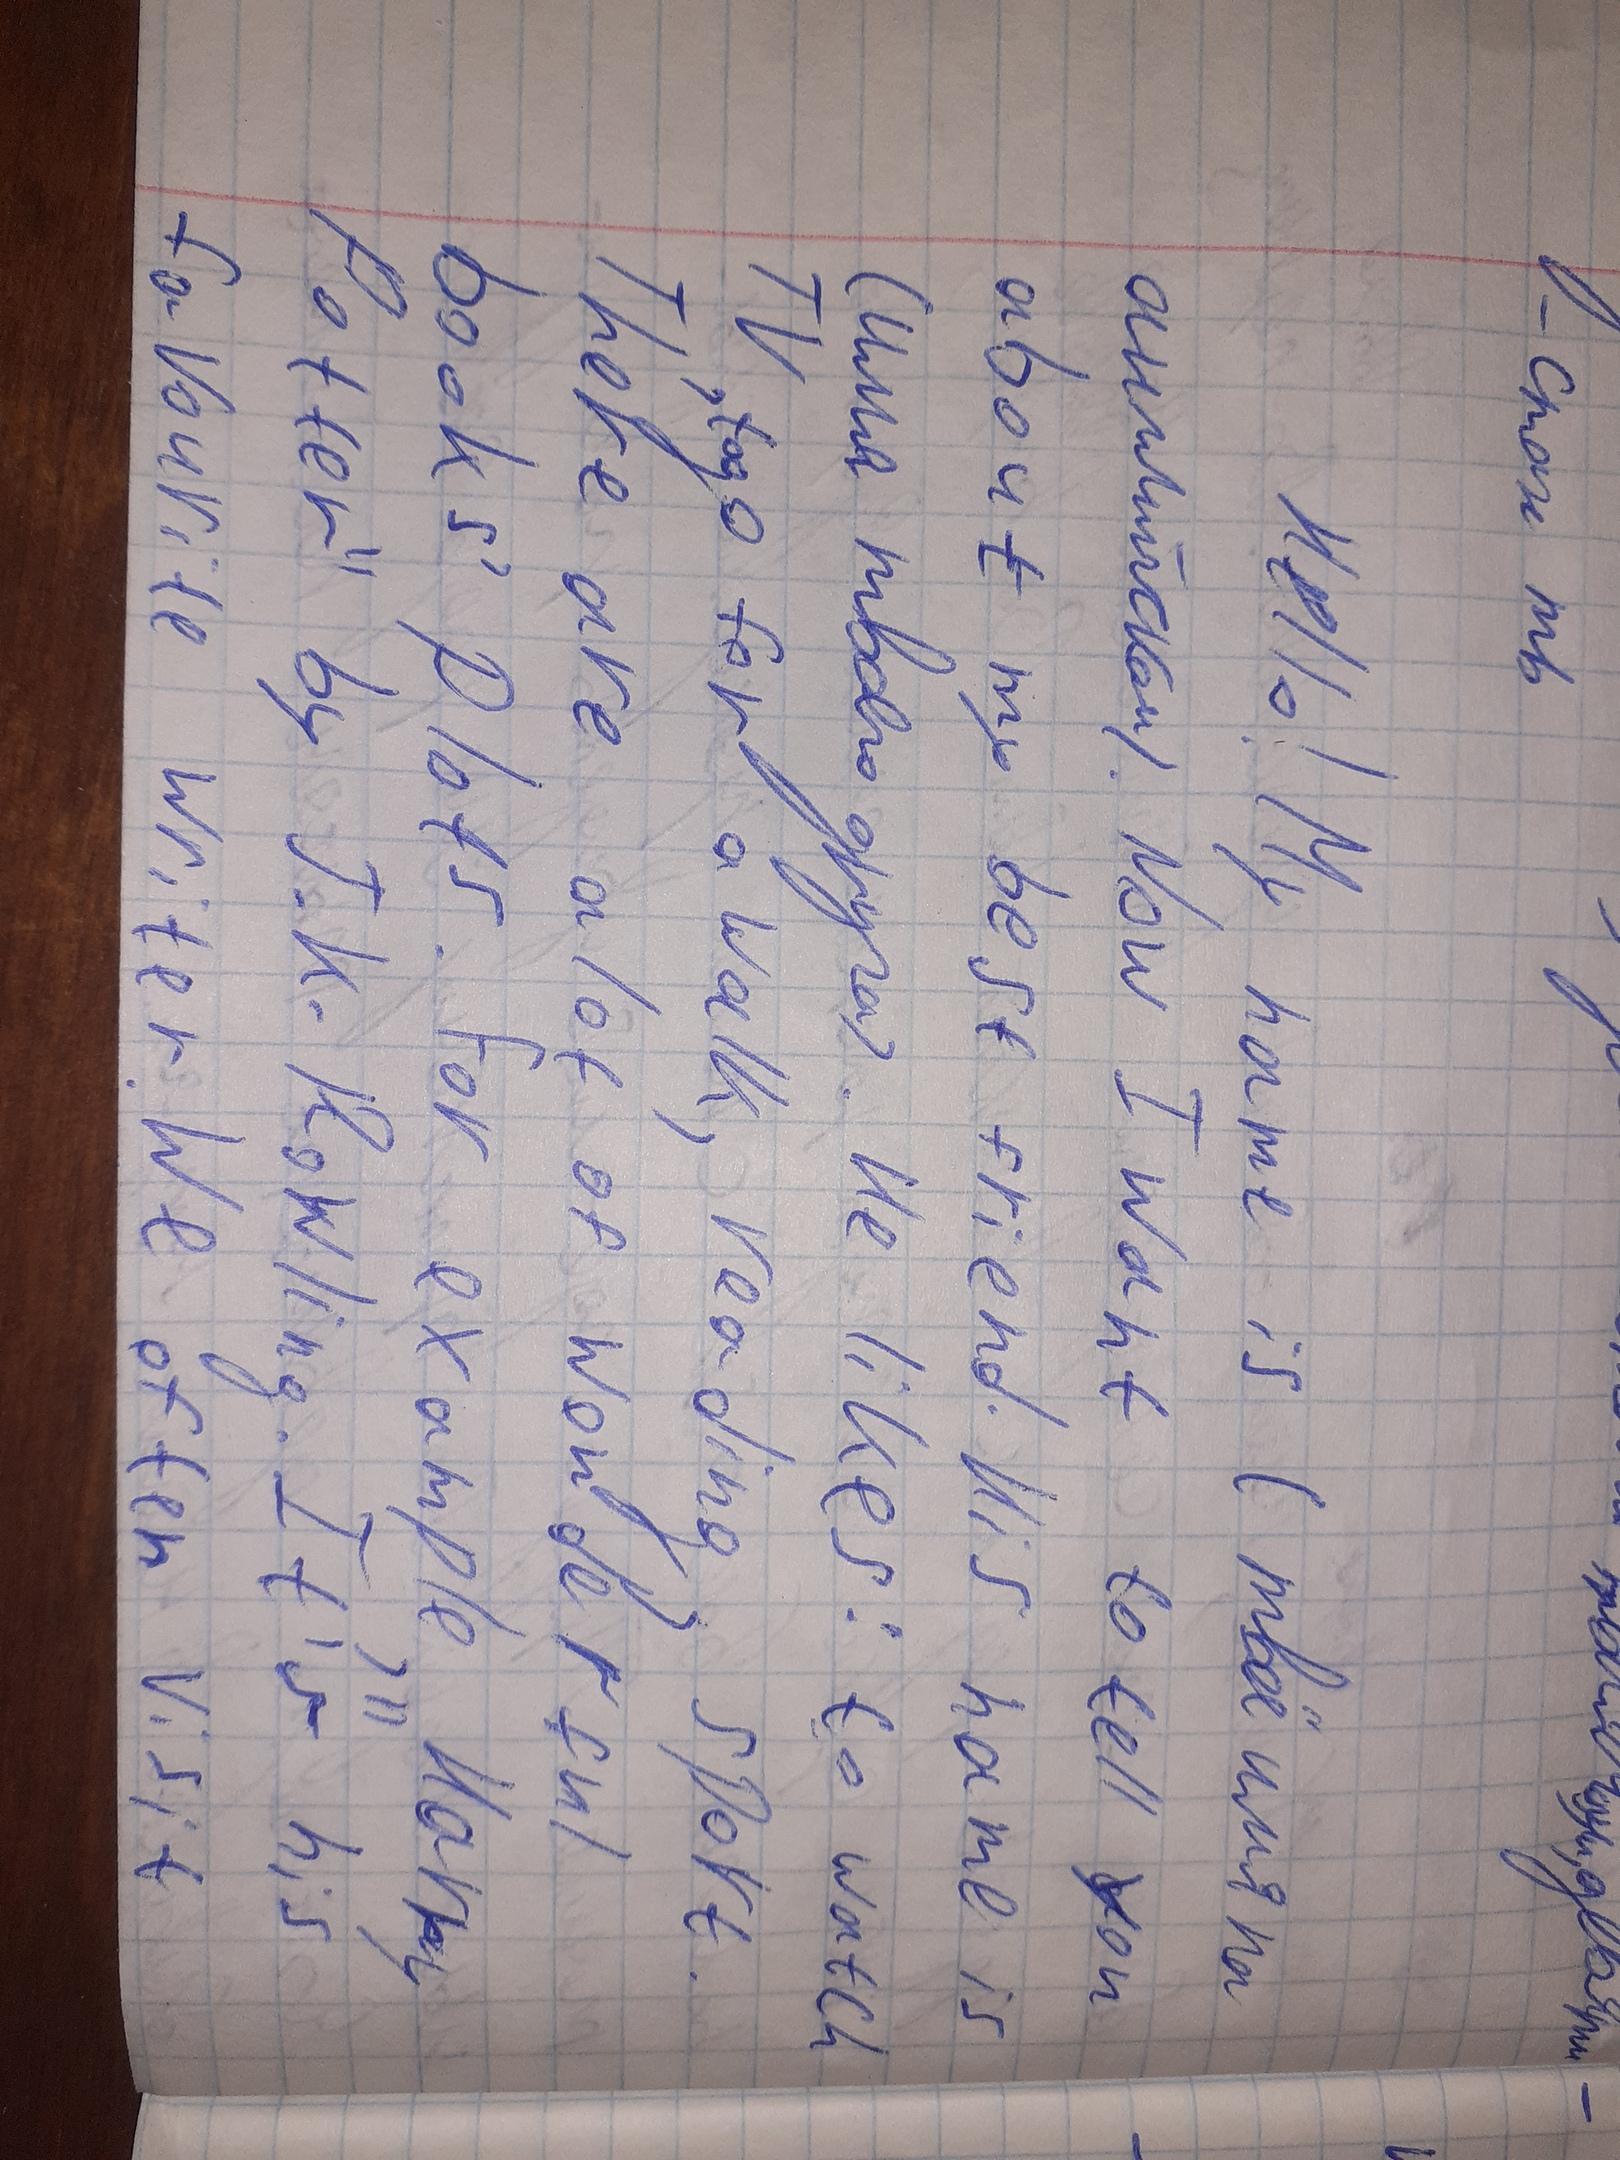 у-стой ть
Hello! My name is (твоё имя на
английском). Now I want to tell you
about my best friend. His name is
(имя твоего друга). He likes: to watch
TV, to go for a walk, reading, sport.
There are a lot of wonderful
books' plots. For example "Harry
Potter" by J.K. Rowling. It is his
favourite writer. We often visit